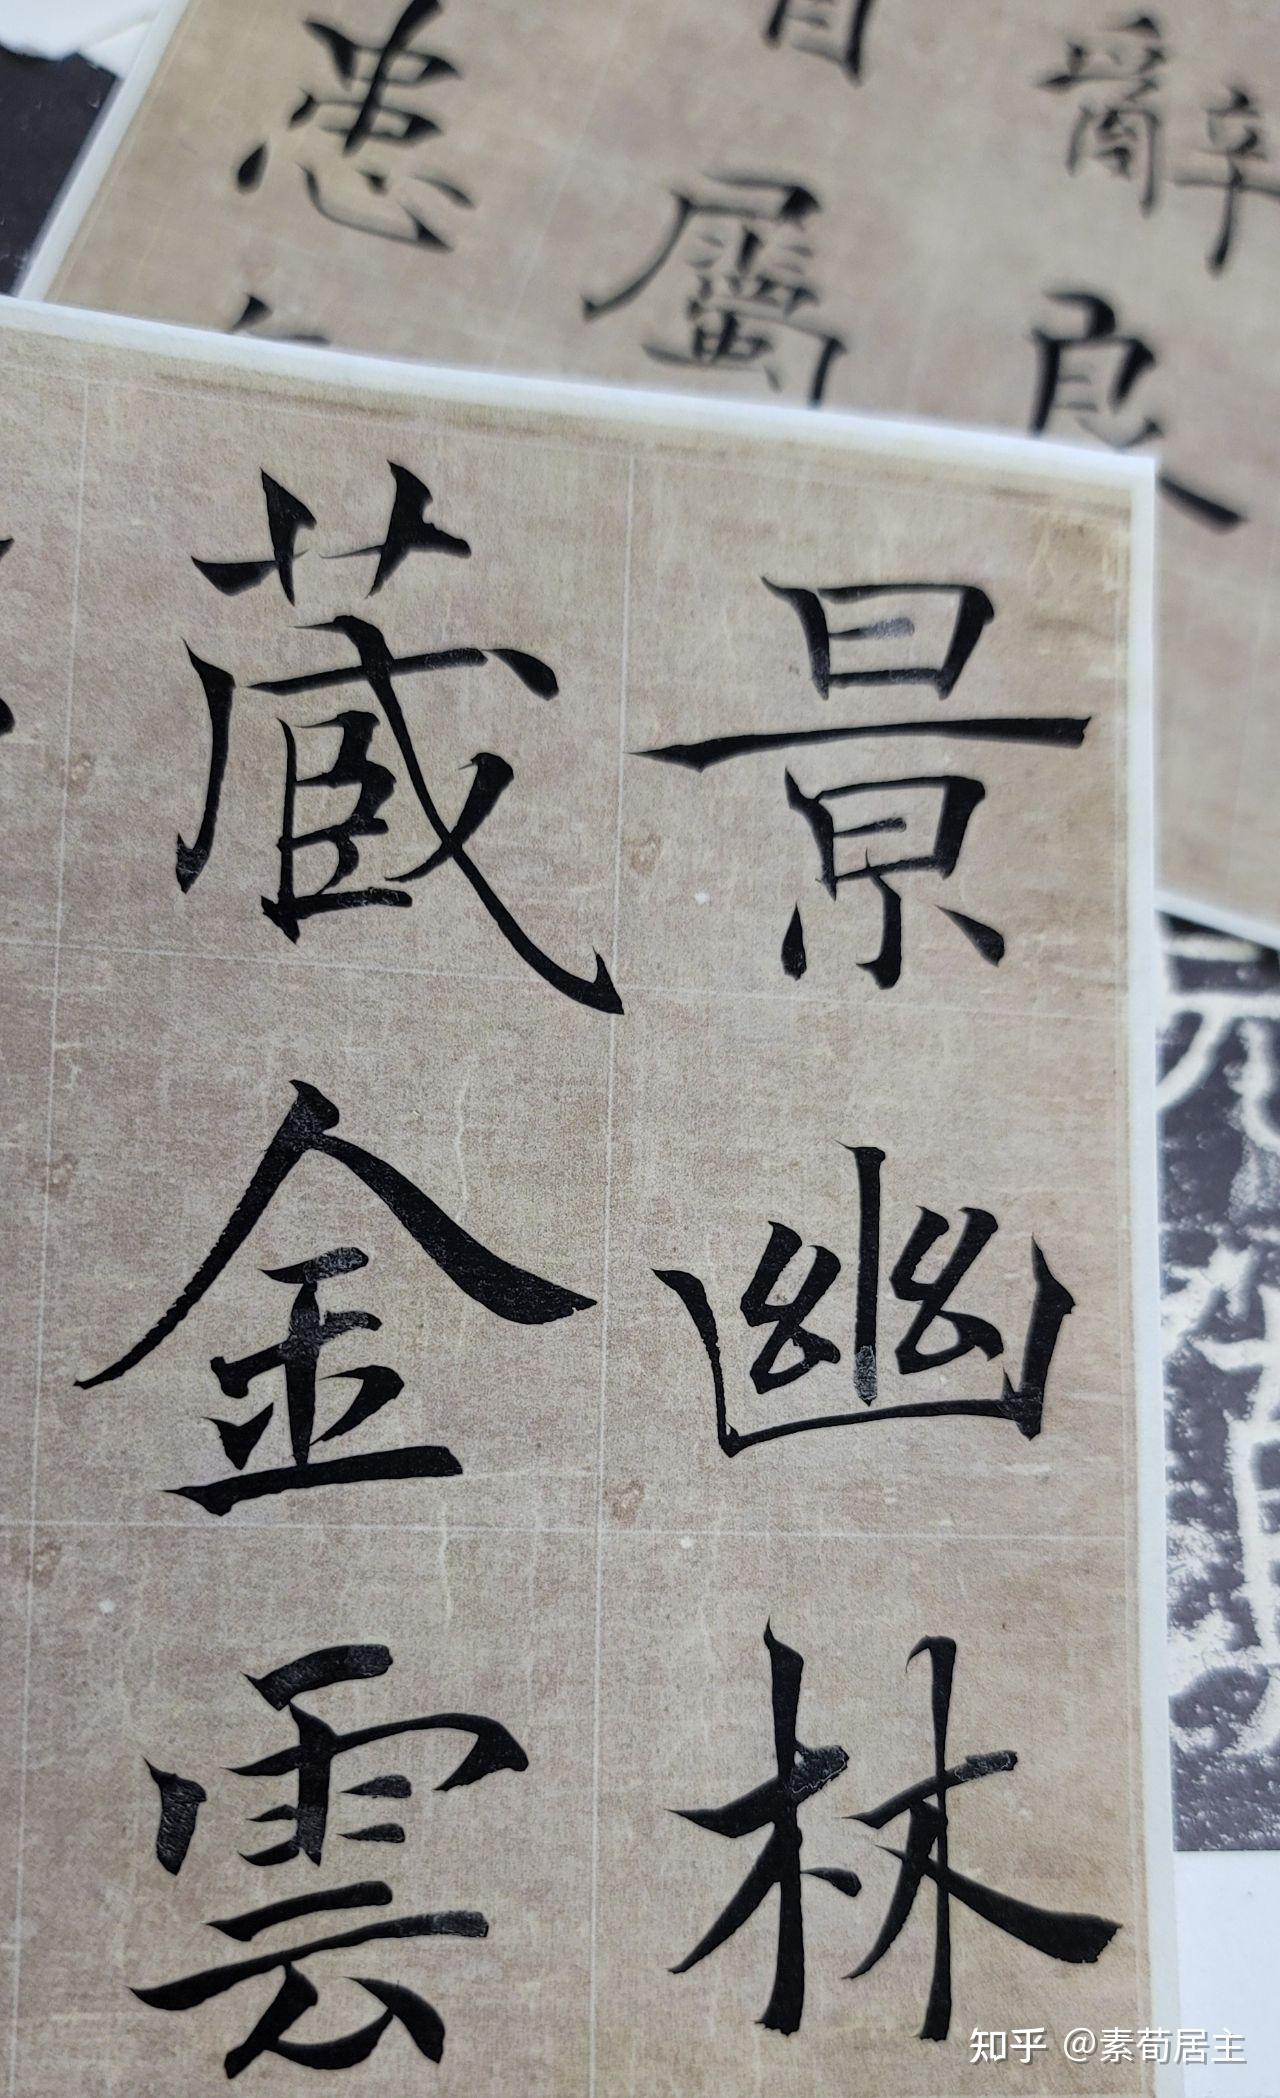 景幽林
藏金雲
爵辞
良
屬
患
知乎 @素荀居主